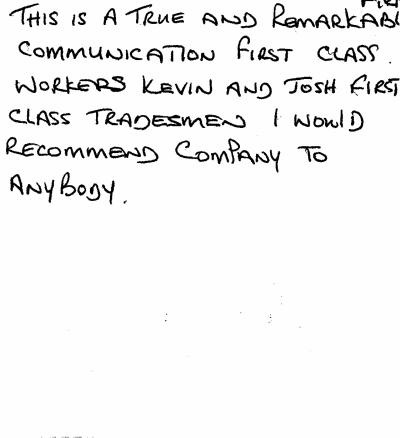 THIS IS A TRUE AND REMARKABL
COMMUNICATION FIRST CLASS.
WORKERS KEVIN AND JOSH FIRST
CLASS TRADESMEN I WOULD
RECOMMEND COMPANY TO
ANYBODY.